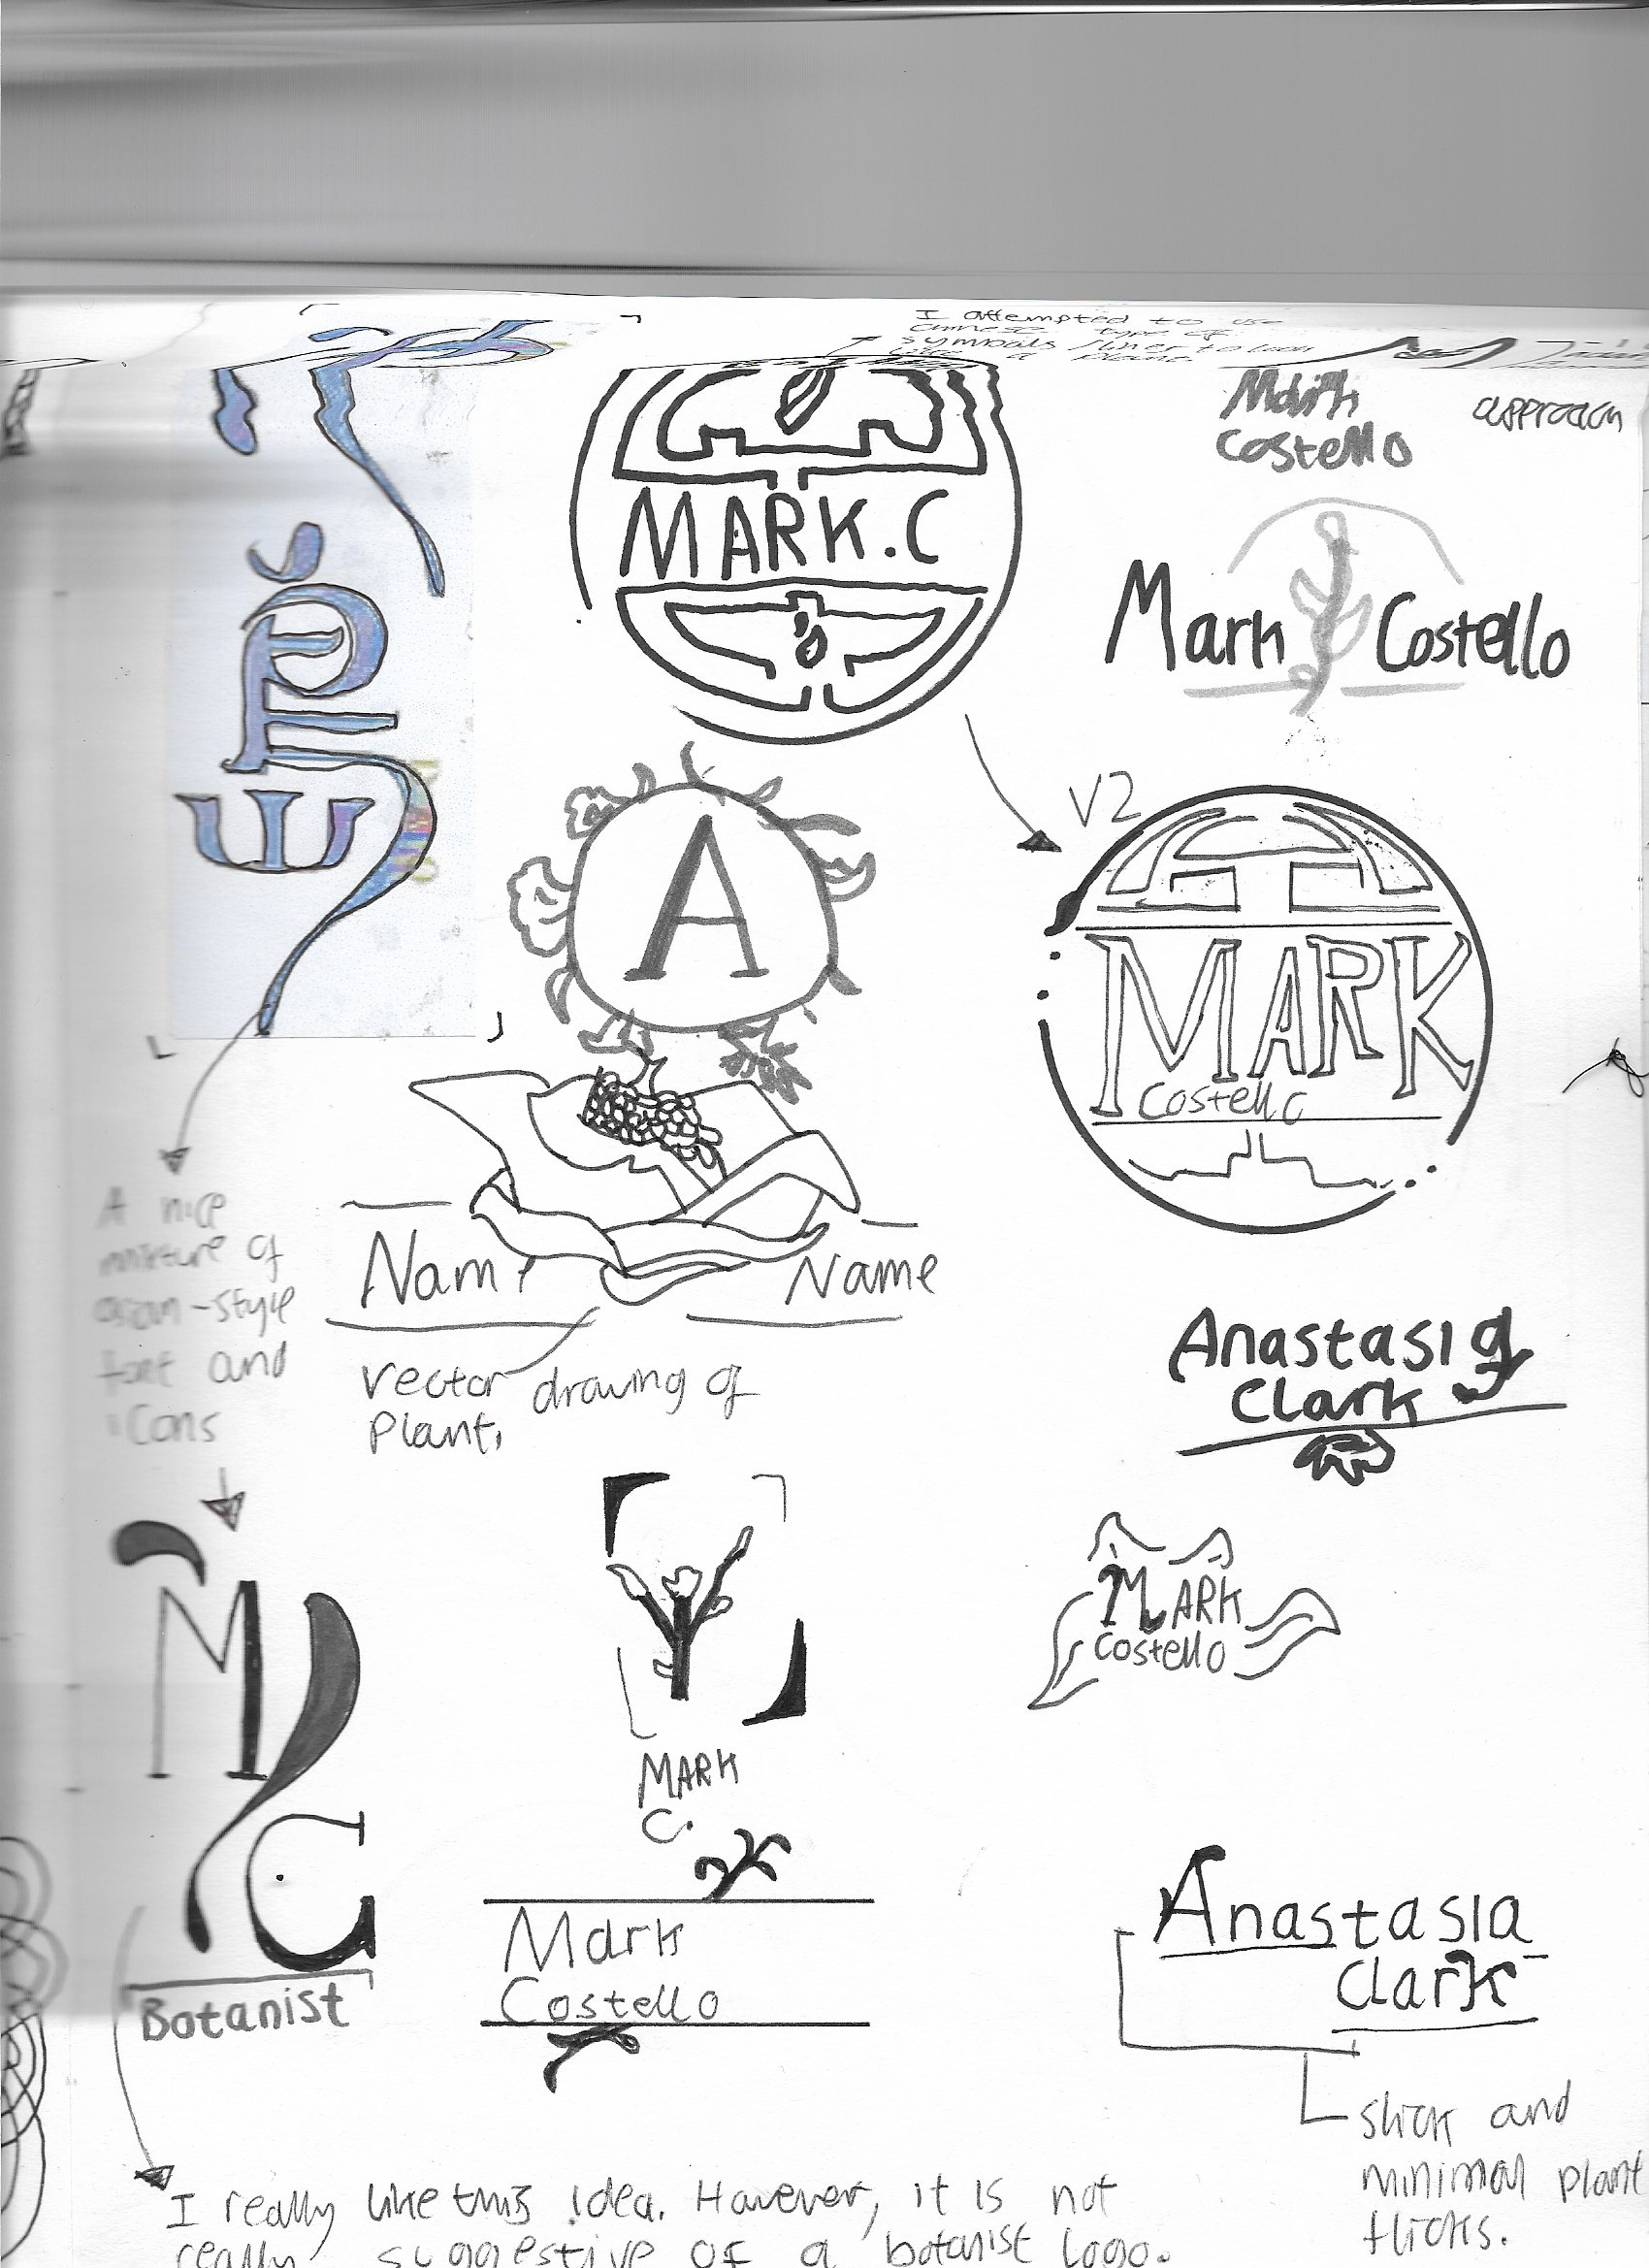 I attempted to use
chinese type of
symbols liner to look
like a plant
Mark
Costello
approach
MARK.C
Mark Costello
V2
A
MARK
Costello
A nice
mixture of
asian-style
font and
icons
Name Name
vector drawing of
Plant.
Anastasia
Clark
M
C
Botanist
MARK
C.
MARK
Costello
Mark
Costello
Anastasia
Clark
slick and
minimal plant
flicks.
I really like this idea. However, it is not
really suggestive of a botanist logo.